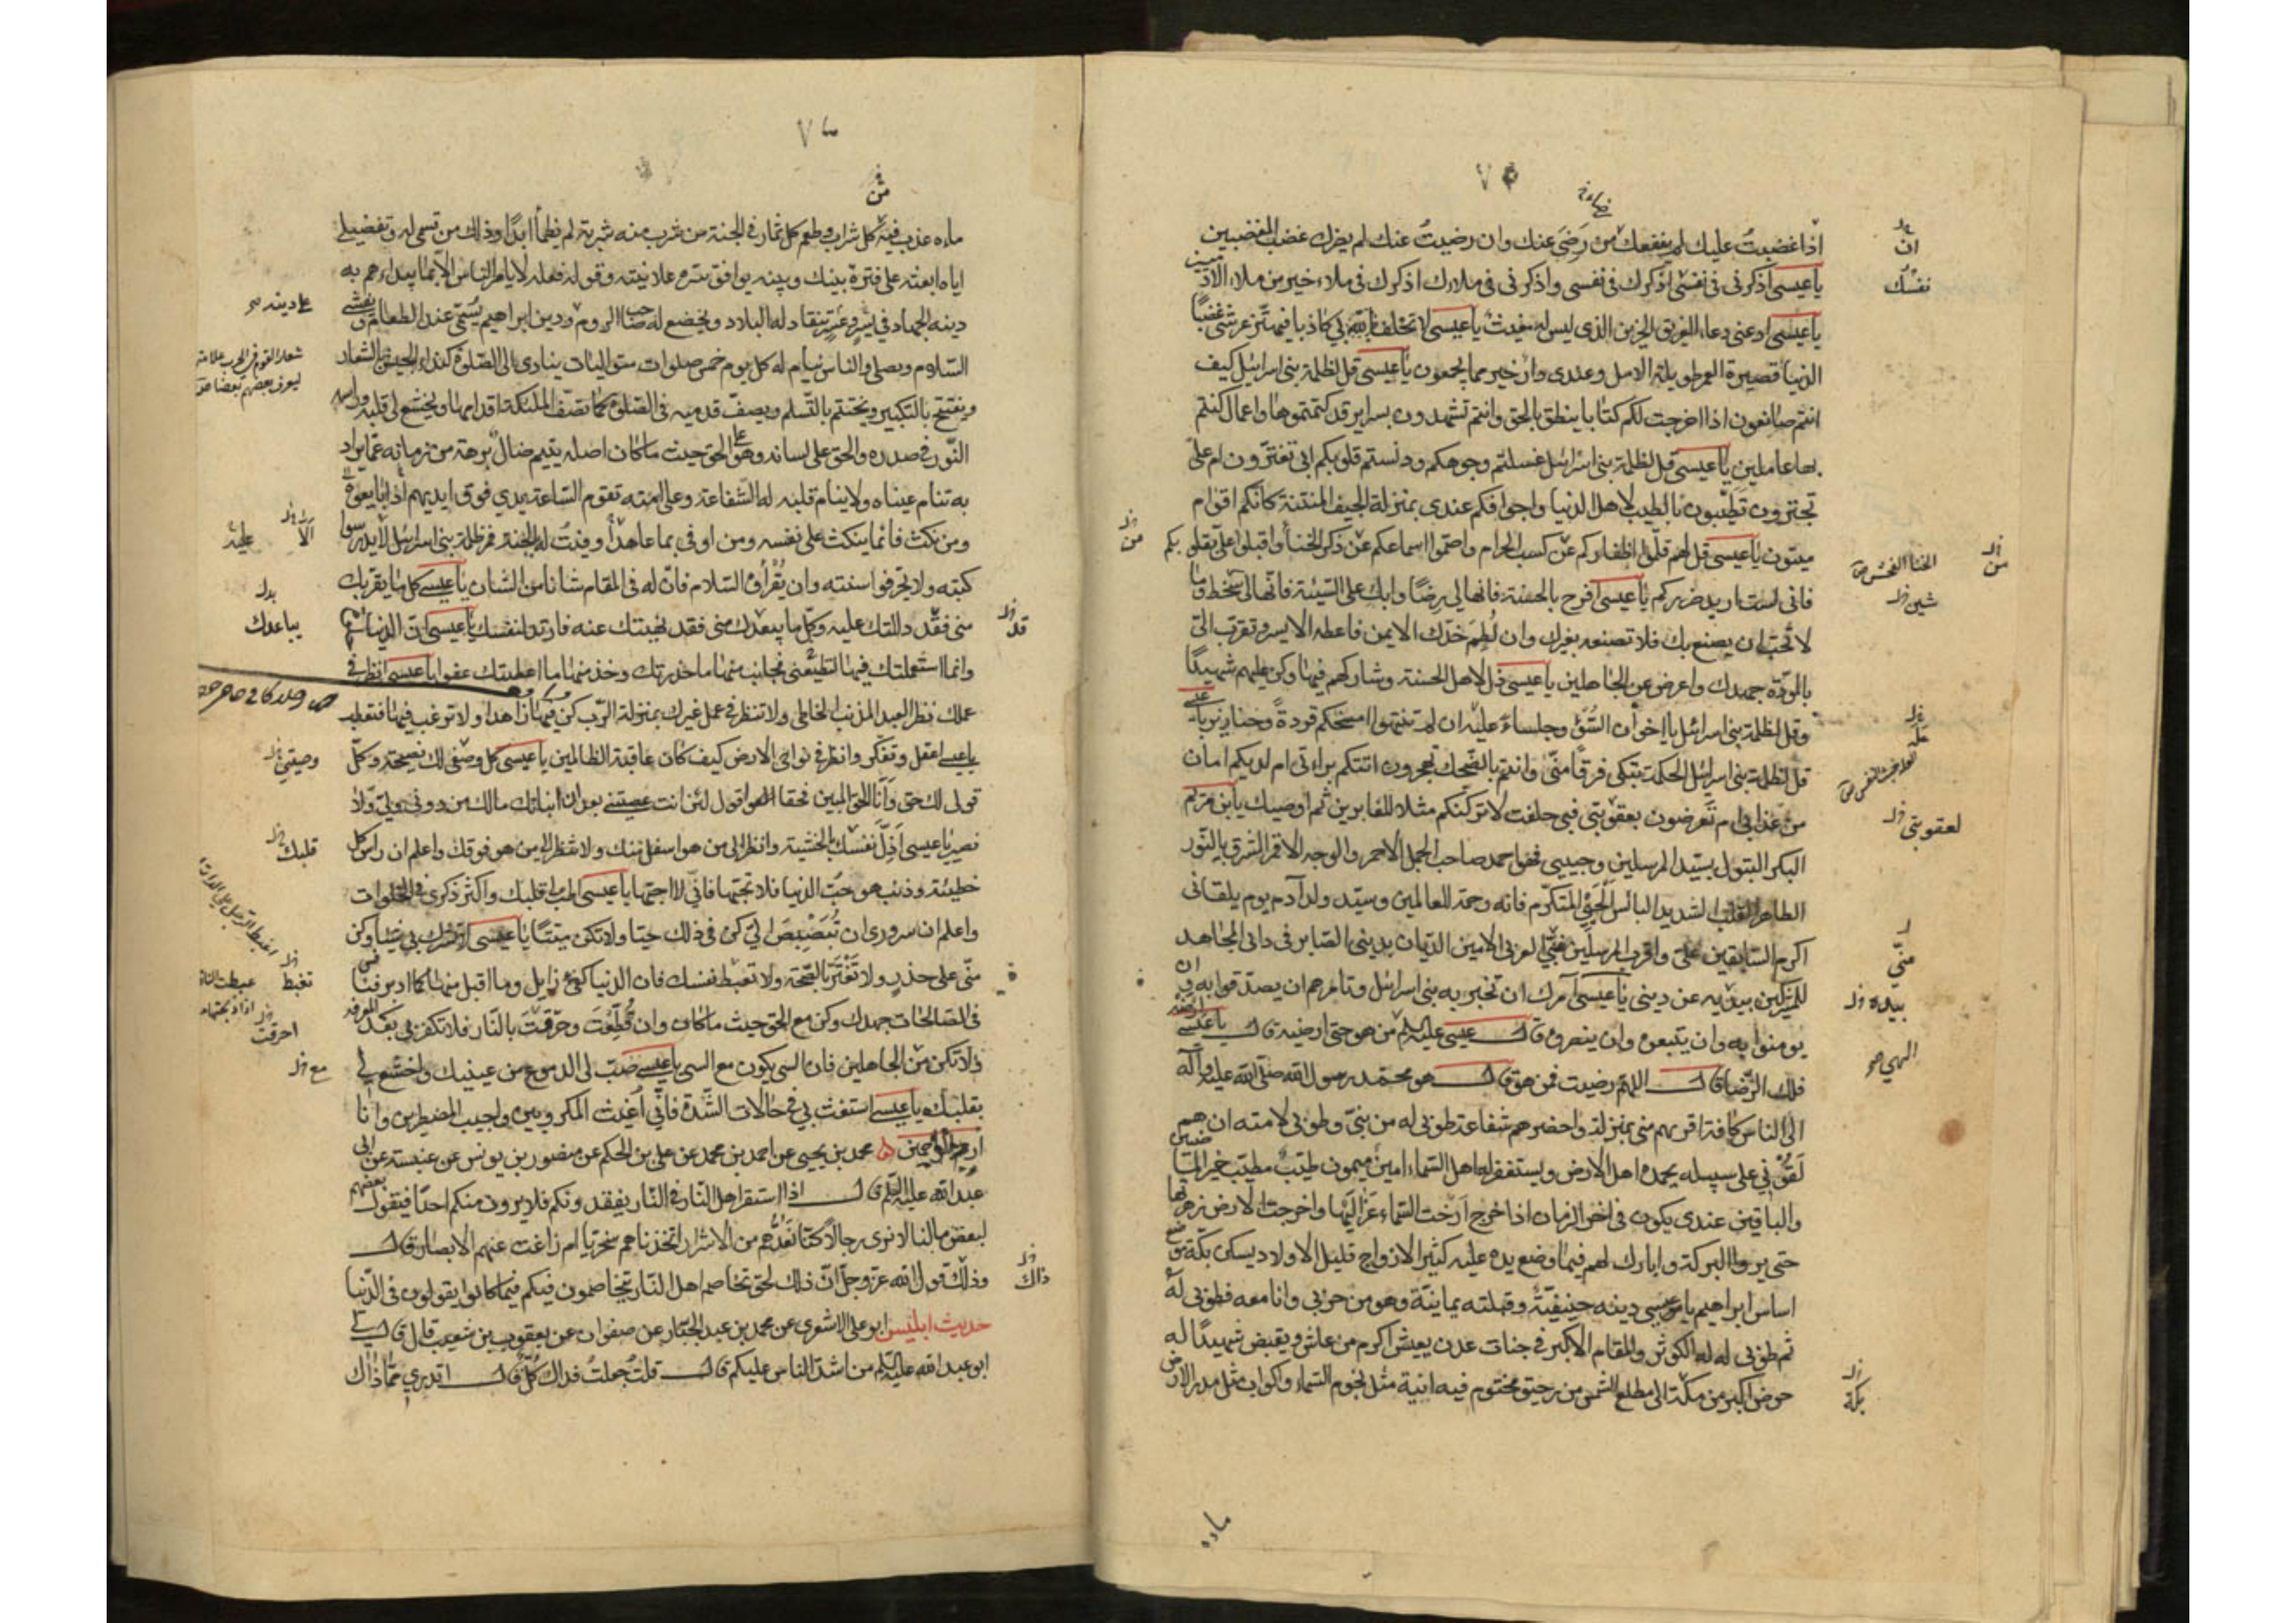 اذا غضبتُ عليك لم ينفعك من رَضيَ عنك وان رضيتُ عنك لم يضرك غضب المغضبين
يا عيسى اذكرنى فى نفسك اذكرك فى نفسى واذكرنى فى ملاءك اذكرك فى ملاء خير من ملاء الادميين
يا عيسى ادعنى دعاء الغريق الحزين الذى ليس له مغيثٌ يا عيسى لا تحلف بى كاذبا فيهتز عرشى غضبًا
الدنيا قصيرة العمر طويلة الامل وعندى دار خير مما يجمعون يا عيسى قل لظلمة بنى اسرائيل كيف
انتم صانعون اذا اخرجت لكم كتابا ينطق بالحق وانتم تشهدون بسراير قد كتمتموها واعمال كنتم
بها عاملين يا عيسى قل لظلمة بنى اسرائيل غسلتم وجوهكم ودنستم قلوبكم ابى تغترّون ام علىّ
تجترون تطيّبون بالطيب لاهل الدنيا واجوافكم عندى بمنزلة الجيف المنتنة كانكم اقوام
ميتون يا عيسى قل لهم قلّموا اظفاركم عن كسب الحرام واصمّوا اسماعكم عن ذكر الخنا واقبلوا علىّ بقلوبكم
فانى لست اريد ضرركم يا عيسى افرح بالحسنة فانها لى رضًا وابك على السّيئة فانّها لى سخط وما
لا تحبّ ان يصنع بك فلا تصنعه بغيرك وان لُطِمَ خدّك الايمن فاعطه الايسر وتقرّب الىّ
بالمودّة جهدك واعرض عن الجاهلين يا عيسى ذل لاهل الحسنة وشاركهم فيها وكن عليهم شهيدًا
وقل لظلمة بنى اسرائيل يا اخدان السّوء وجلساء عليه ان لم تنتهوا امسخكم قردةً وخنازير يا عيسى
قل لظلمة بنى اسرائيل الحكمة تبكى فرقًا منّى وانتم بالضّحك تهجرون اتتكم براءتى ام لديكم امان
من عذابى ام تعرضون بعقوبتى فبى حلفت لاتركنّكم مثلا للغابرين ثم اوصيك يا بن مريم
البكر البتول بسيّد المرسلين وحبيبى فهو احمد صاحب الجمل الاحمر والوجه الاقمر المشرق بالنّور
الطاهر القلب الشديد الباس الحيىّ المتكرّم فانه رحمة للعالمين وسيّد ولد آدم يوم يلقانى
اكرم السّابقين علىّ واقرب المرسلين منّى العربى الامين الديّان بدينى الصّابر فى ذاتى المجاهد
للمشركين بيديه عن دينى يا عيسى آمرك ان تخبر به بنى اسرائيل وتامرهم ان يصدّقوا به وان
يومنوا به وان يتبعوه وان ينصروه قال عيسى عليه السلم من هو حتى ارضيه قال يا عيسى ارضه
فلك الرّضا قال اللهمّ رضيت فمن هو قال هو محمّد رسول الله صلى الله عليه وآله
الى الناس كافة اقربهم منى بمنزلة واحضرهم شفاعة طوبى له من نبىّ وطوبى لامته ان هم
لَقُونى على سبيله يحمده اهل الارض ويستغفر له اهل السّماء امين ميمون طيّبٌ مطيّب خير الماضين
والباقين عندى يكون فى اخر الزمان اذا خرج ارخت السّماء عزاليها واخرجت الارض زهرتها
حتى يروا البركة وابارك لهم فيما وضع يده عليه كثير الازواج قليل الاولاد يسكن بكّة موضع
اساس ابراهيم يا عيسى دينه حنيفيّة وقبلته يمانيّة وهو من حزبى وانا معه فطوبى له
ثم طوبى له له الكوثر والمقام الاكبر فى جنات عدن يعيش اكرم من عاش ويقبض شهيدًا له
حوض اكبر من مكّة الى مطلع الشمس من رحيق مختوم فيه انية مثل نجوم السّماء واكواب مثل مدر الارض
ان
نفسك
من
الخنا الفحش
شين
لعقوبتى
منّى
بيده
الهى
بكة
ماءه
ماءه عذب فيه كل شراب وطعم كل ثمار فى الجنة من شرب منه شربة لم يظمأ ابدًا وذلك من قسمى له وتفضيلى
اياه ابعثه على فترة بينك وبينه يوافق سرّه علانيته وقوله فعله لا يامر الناس الا بما يبداءهم به
دينه الجهاد فى يُسرٍ وعُسرٍ تنقاد له البلاد ويخضع له صاحب الروم ودين ابراهيم يُسَمّى عند الطعام ويفشى
السّلام ويصلى والناس نيام له كل يوم خمس صلوات متواليات ينادى الى الصّلوة كنداء الجيش بالشّعار
ويفتتح بالتكبير ويختتم بالتّسليم ويصفّ قدميه فى الصّلوة كما تصفّ الملئكة اقدامها ويخشع لى قلبه وراسه
النّور فى صدره والحق على لسانه وهو على الحق حيث ما كان اصله يتيم ضال برهة من زمانه عمّا يراد
به تنام عيناه ولا ينام قلبه له الشّفاعة وعلى امّته تقوم السّاعة يدى فوق ايديهم اذا بايعوه
ومن نكث فانما ينكث على نفسه ومن اوفى بما عاهد وفيتُ له بالجنة فمر ظلمة بنى اسرائيل لا يدرسوا
كتبه ولا يحرّفوا سنته وان يُقرأوه السّلام فانّ له فى المقام شانا من الشّان يا عيسى كل ما يقربك
منى فقد دللتك عليه وكلّ ما يبعدك منى فقد نهيتك عنه فارتد لنفسك يا عيسى ان الدنيا
وانما استعملتك فيها لتطيعنى فجانب منها ما حذرتك وخذ منها ما اعطيتك عفوا يا عيسى انظر فى
عملك نظر العبد المذنب الخاطى ولا تنظر فى عمل غيرك بمنزلة الرّب كن فيها زاهدا ولا ترغب فيها فتعطب
يا عيسى اعقل وتفكّر وانظر فى نواحى الارض كيف كان عاقبة الظالمين يا عيسى كل وصفى لك نصيحة وكلّ
قولى لك حق وانا الحق المبين فحقا اقول لئن انت عصيتنى بعد ان انباتك مالك من دونى ولىّ ولا
نصير يا عيسى اذلّ نفسك بالخشية وانظر الى من هو اسفل منك ولا تنظر الى من هو فوقك واعلم ان راس كل
خطيئة وذنب هو حبّ الدنيا فلا تحبّها فانّى لا احبّها يا عيسى اطب لى قلبك واكثر ذكرى فى الخلوات
واعلم ان سرورى ان تُبَصْبِصَ الىّ كن فى ذلك حيّا ولا تكن ميّتًا يا عيسى لا تشرك بى شيئا وكن
منّى على حذرٍ ولا تغترّ بالصّحّة ولا تغبط نفسك فان الدنيا كفئ زايل وما اقبل منها كما ادبر فنافس
فى الصّالحات جهدك وكن مع الحق حيث ما كان وان قُطّعت وحرّقت بالنّار فلا تكفر بى بعد المعرفة
ولا تكن من الجاهلين فان السى يكون مع السى يا عيسى صبّ لى الدموع من عينيك واخشع لى
بقلبك يا عيسى استغث بى فى حالات الشّدّة فانّى اُغيث المكروبين واجيب المضطرين وانا
ارحم الراحمين محمد بن يحيى عن احمد بن محمد عن على بن الحكم عن منصور بن يونس عن عنبسة عن ابى
عبد الله عليه السّلم قال اذا استقر اهل النّار فى النّار يفقدونكم فلا يرون منكم احدًا فيقول بعضهم
لبعض ما لنا لا نرى رجالًا كنّا نعدّهم من الاشرار اتخذناهم سخريّا ام زاغت عنهم الابصار قال
وذلك قول الله عز وجل انّ ذلك لحق تخاصم اهل النّار يتخاصمون فيكم فيما كانوا يقولون فى الدّنيا
حديث ابليس ابو على الاشعرى عن محمد بن عبد الجبّار عن صفوان عن يعقوب بن شعيب قال قال لى
ابو عبد الله عليه السّلم من اشدّ الناس عليكم قال قلت جُعلتُ فداك كُلّ قال اتدرى ممّا ذاك
على دينه
شعار القوم فى الحرب علامتهم
ليعرف بعضهم بعضا
عليه
الا
يباعدك
قد
وصيتى
قلبك
تغبط
احرقت
مع
ذاك